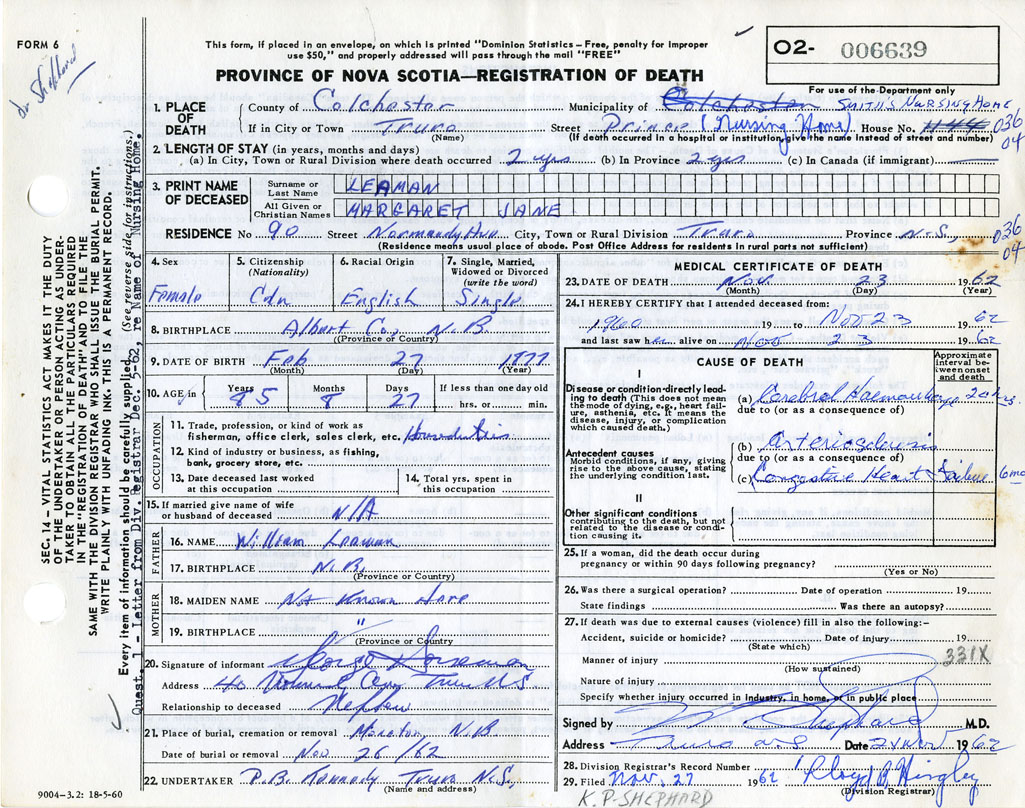 FORM 6
Dr Shephard
This form, if placed in an envelope, on which is printed "Dominion Statistics – Free, penalty for improper
use $50," and properly addressed will pass through the mail "FREE"
O2- 006639
For use of the Department only
PROVINCE OF NOVA SCOTIA—REGISTRATION OF DEATH
SMITH'S NURSING HOME
1. PLACE OF DEATH County of Colchester Municipality of Colchester
If in City or Town Truro Street Prince (Nursing Home) House No. #44 036 04
(Name) (If death occurred in a hospital or institution, give the name instead of street and number)
2. LENGTH OF STAY (in years, months and days)
(a) In City, Town or Rural Division where death occurred 2 yrs (b) In Province 2 yrs (c) In Canada (if immigrant)
3. PRINT NAME OF DECEASED Surname or Last Name LEAMAN
All Given or Christian Names MARGARET JANE
RESIDENCE No 90 Street Normandy Ave City, Town or Rural Division Truro Province N.S., 036 04
(Residence means usual place of abode. Post Office Address for residents in rural parts not sufficient)
4. Sex Female
5. Citizenship (Nationality) Cdn
6. Racial Origin English
7. Single, Married, Widowed or Divorced (write the word) Single
8. BIRTHPLACE Albert Co., N.B
(Province or Country)
9. DATE OF BIRTH Feb 27 1877
(Month) (Day) (Year)
10. AGE in Years 85 Months 8 Days 27 If less than one day old hrs. or min.
OCCUPATION
11. Trade, profession, or kind of work as
fisherman, office clerk, sales clerk, etc.
12. Kind of industry or business, as fishing,
bank, grocery store, etc.
13. Date deceased last worked
at this occupation
14. Total yrs. spent in
this occupation
15. If married give name of wife
or husband of deceased N/A
FATHER
16. NAME William Leaman
17. BIRTHPLACE N.B.
(Province or Country)
MOTHER
18. MAIDEN NAME Not Known Hare
19. BIRTHPLACE "
(Province or Country)
20. Signature of informant
Address 40 Truro N.S.
Relationship to deceased Nephew
21. Place of burial, cremation or removal Moncton, N.B
Date of burial or removal Nov. 26/62
22. UNDERTAKER P.B. Kennedy Truro N.S.,
(Name and address)
MEDICAL CERTIFICATE OF DEATH
23. DATE OF DEATH Nov. 23 1962
(Month) (Day) (Year)
24. I HEREBY CERTIFY that I attended deceased from:
1960 19 to Nov 23 1962
and last saw her alive on Nov 23 1962
CAUSE OF DEATH
Approximate interval between onset and death
I
Disease or condition directly leading to death (This does not mean the mode of dying, e.g., heart failure, asthenia, etc. It means the disease, injury, or complication which caused death.)
(a) Cerebral Haemorrhage
due to (or as a consequence of)
Antecedent causes
Morbid conditions, if any, giving rise to the above cause, stating the underlying condition last.
(b) Arteriosclerosis
due to (or as a consequence of)
(c) Congestive Heart Failure 6 mo
II
Other significant conditions
contributing to the death, but not related to the disease or condition causing it.
25. If a woman, did the death occur during
pregnancy or within 90 days following pregnancy?
(Yes or No)
26. Was there a surgical operation? Date of operation 19
State findings Was there an autopsy?
27. If death was due to external causes (violence) fill in also the following:-
Accident, suicide or homicide? Date of injury 19
(State which)
Manner of injury 331X
(How sustained)
Nature of injury
Specify whether injury occurred in industry, in home, or in public place
Signed by Shephard M.D.
Address Truro N.S. Date 24 Nov 1962
28. Division Registrar's Record Number
29. Filed Nov. 27 1962 Lloyd B Hingley
(Division Registrar)
K.P-SHEPHARD
9004-3.2: 18-5-60
SEC. 14 – VITAL STATISTICS ACT MAKES IT THE DUTY
OF THE UNDERTAKER OR PERSON ACTING AS UNDER-
TAKER "TO OBTAIN ALL THE PARTICULARS REQUIRED
IN THE "REGISTRATION OF DEATH" AND TO FILE THE
SAME WITH THE DIVISION REGISTRAR WHO SHALL ISSUE THE BURIAL PERMIT.
WRITE PLAINLY WITH UNFADING INK. THIS IS A PERMANENT RECORD.
Every item of information should be carefully supplied. (See reverse side for instructions.)
Quest. 1 - Letter from Div. Registrar Dec. 5-62, re Name of Nursing Home.